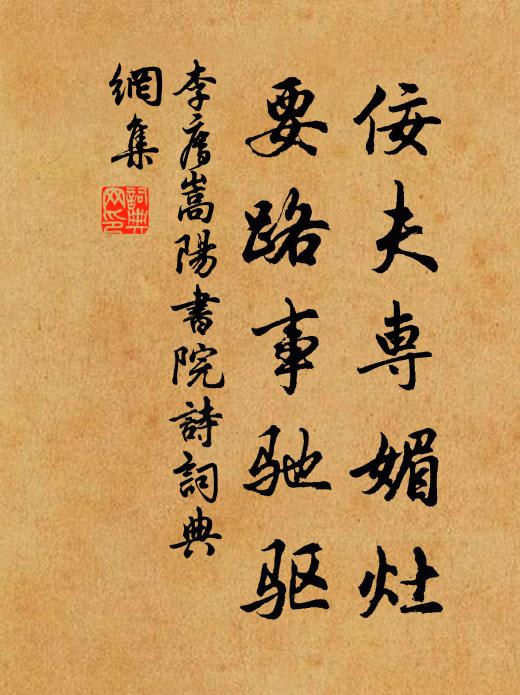 佞夫専媚灶
要路事驰驱
李廌嵩陽書院詩詞典
網集
詞典網印